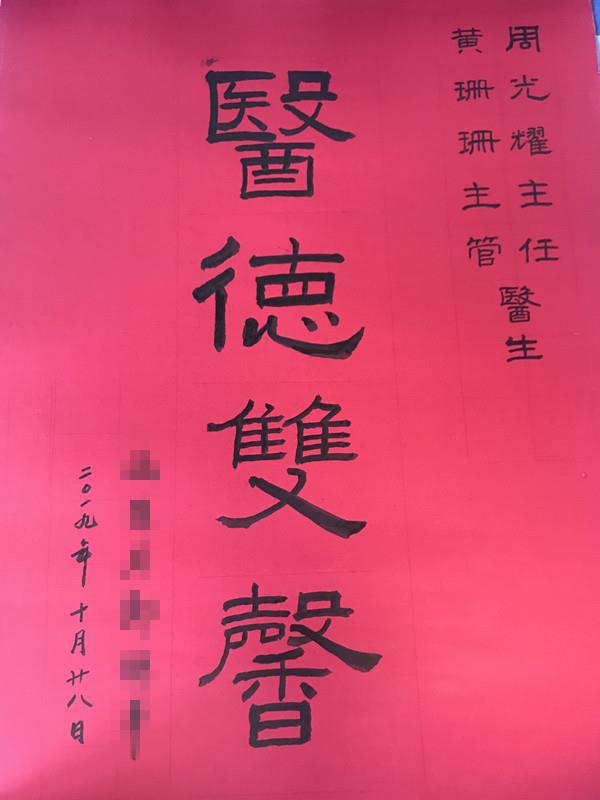 周光耀主任醫生
黃珊珊主管
醫德雙馨
二〇一九年十月廿八日